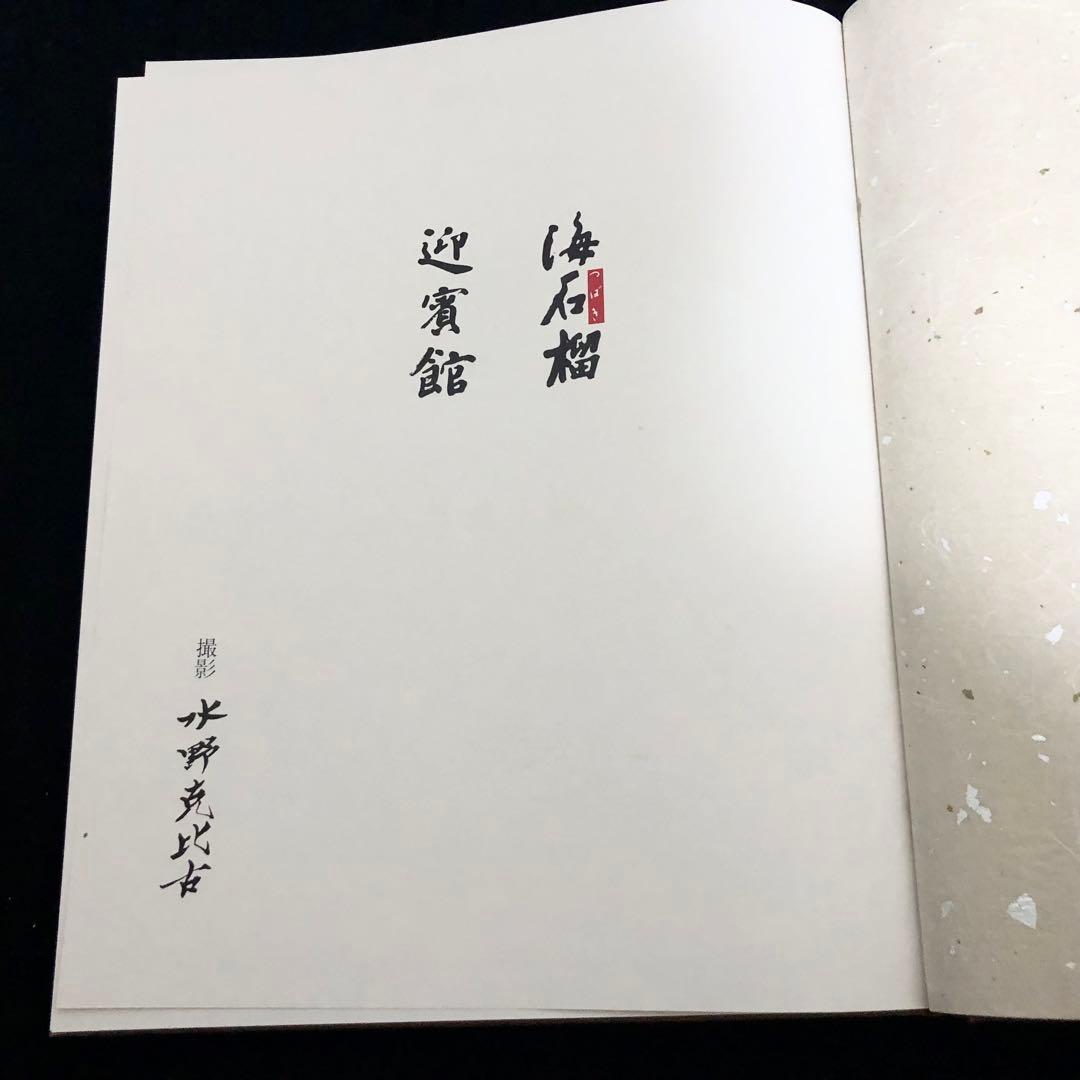 海石榴
つばき
迎賓館
撮影
水野克比古